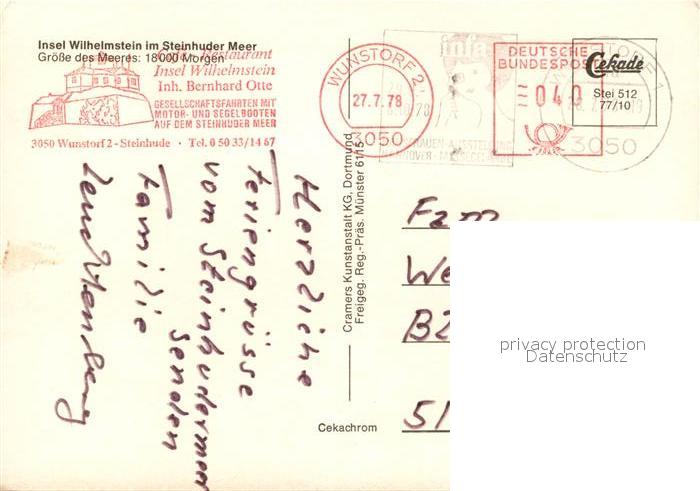 Insel Wilhelmstein im Steinhuder Meer
Größe des Meeres: 18000 Morgen
Restaurant
Insel Wilhelmstein
Inh. Bernhard Otte
GESELLSCHAFTSFAHRTEN MIT
MOTOR- UND SEGELBOOTEN
AUF DEM STEINHUDER MEER
3050 Wunstorf 2 - Steinhude · Tel. 0 50 33/14 67
WUNSTORF 2
27.7.78
3050
infa
HANNOVER
DEUTSCHE
BUNDESPOST
040
3050
Cekade
Stei 512
77/10
Herzliche
Feriengrüsse
vom Steinhudermeer
senden
Familie
Cramers Kunstanstalt KG, Dortmund
Freigeg. Reg.-Präs. Münster 61/15
Cekachrom
Fam
We
B2
51
privacy protection
Datenschutz